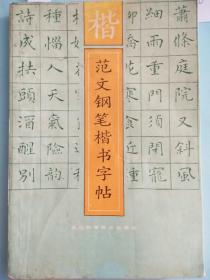 蕭條庭院又斜風
細雨重門須閉寵
楷
范文钢笔楷书字帖
種惱人天氣險韻
詩成扶頭酒醒別